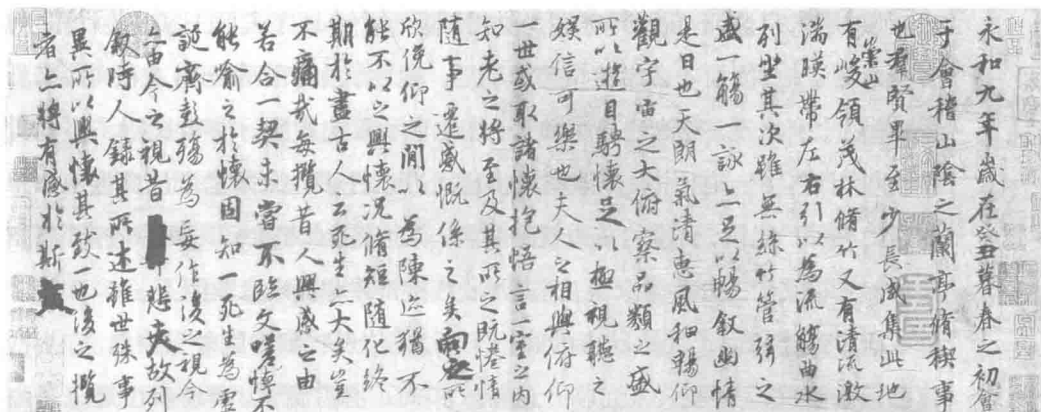 永和九年歲在癸丑暮春之初會
于會稽山陰之蘭亭脩稧事
也羣賢畢至少長咸集此地
有崇山峻領茂林脩竹又有清流激
湍暎帶左右引以為流觴曲水
列坐其次雖無絲竹管弦之
盛一觴一詠亦足以暢敘幽情
是日也天朗氣清惠風和暢仰
觀宇宙之大俯察品類之盛
所以遊目騁懷足以極視聽之
娛信可樂也夫人之相與俯仰
一世或取諸懷抱悟言一室之內
知老之將至及其所之既惓情
隨事遷感慨係之矣向之所
欣俛仰之間以為陳迹猶不
能不以之興懷況脩短隨化終
期於盡古人云死生亦大矣豈
不痛哉每攬昔人興感之由
若合一契未嘗不臨文嗟悼不
能喻之於懷固知一死生為虛
誕齊彭殤為妄作後之視今
亦由今之視昔悲夫故列
敘時人錄其所述雖世殊事
異所以興懷其致一也後之攬
者亦將有感於斯文